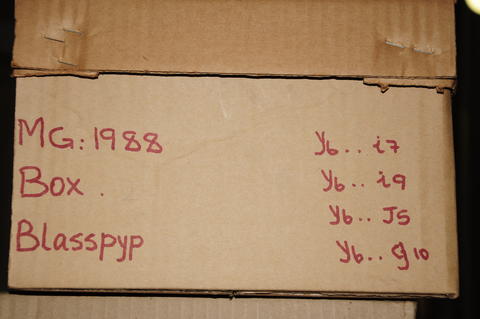 MG: 1988
Box .
Blasspyp
Yb.. i7
Yb.. i9
Yb.. J5
Yb.. g10